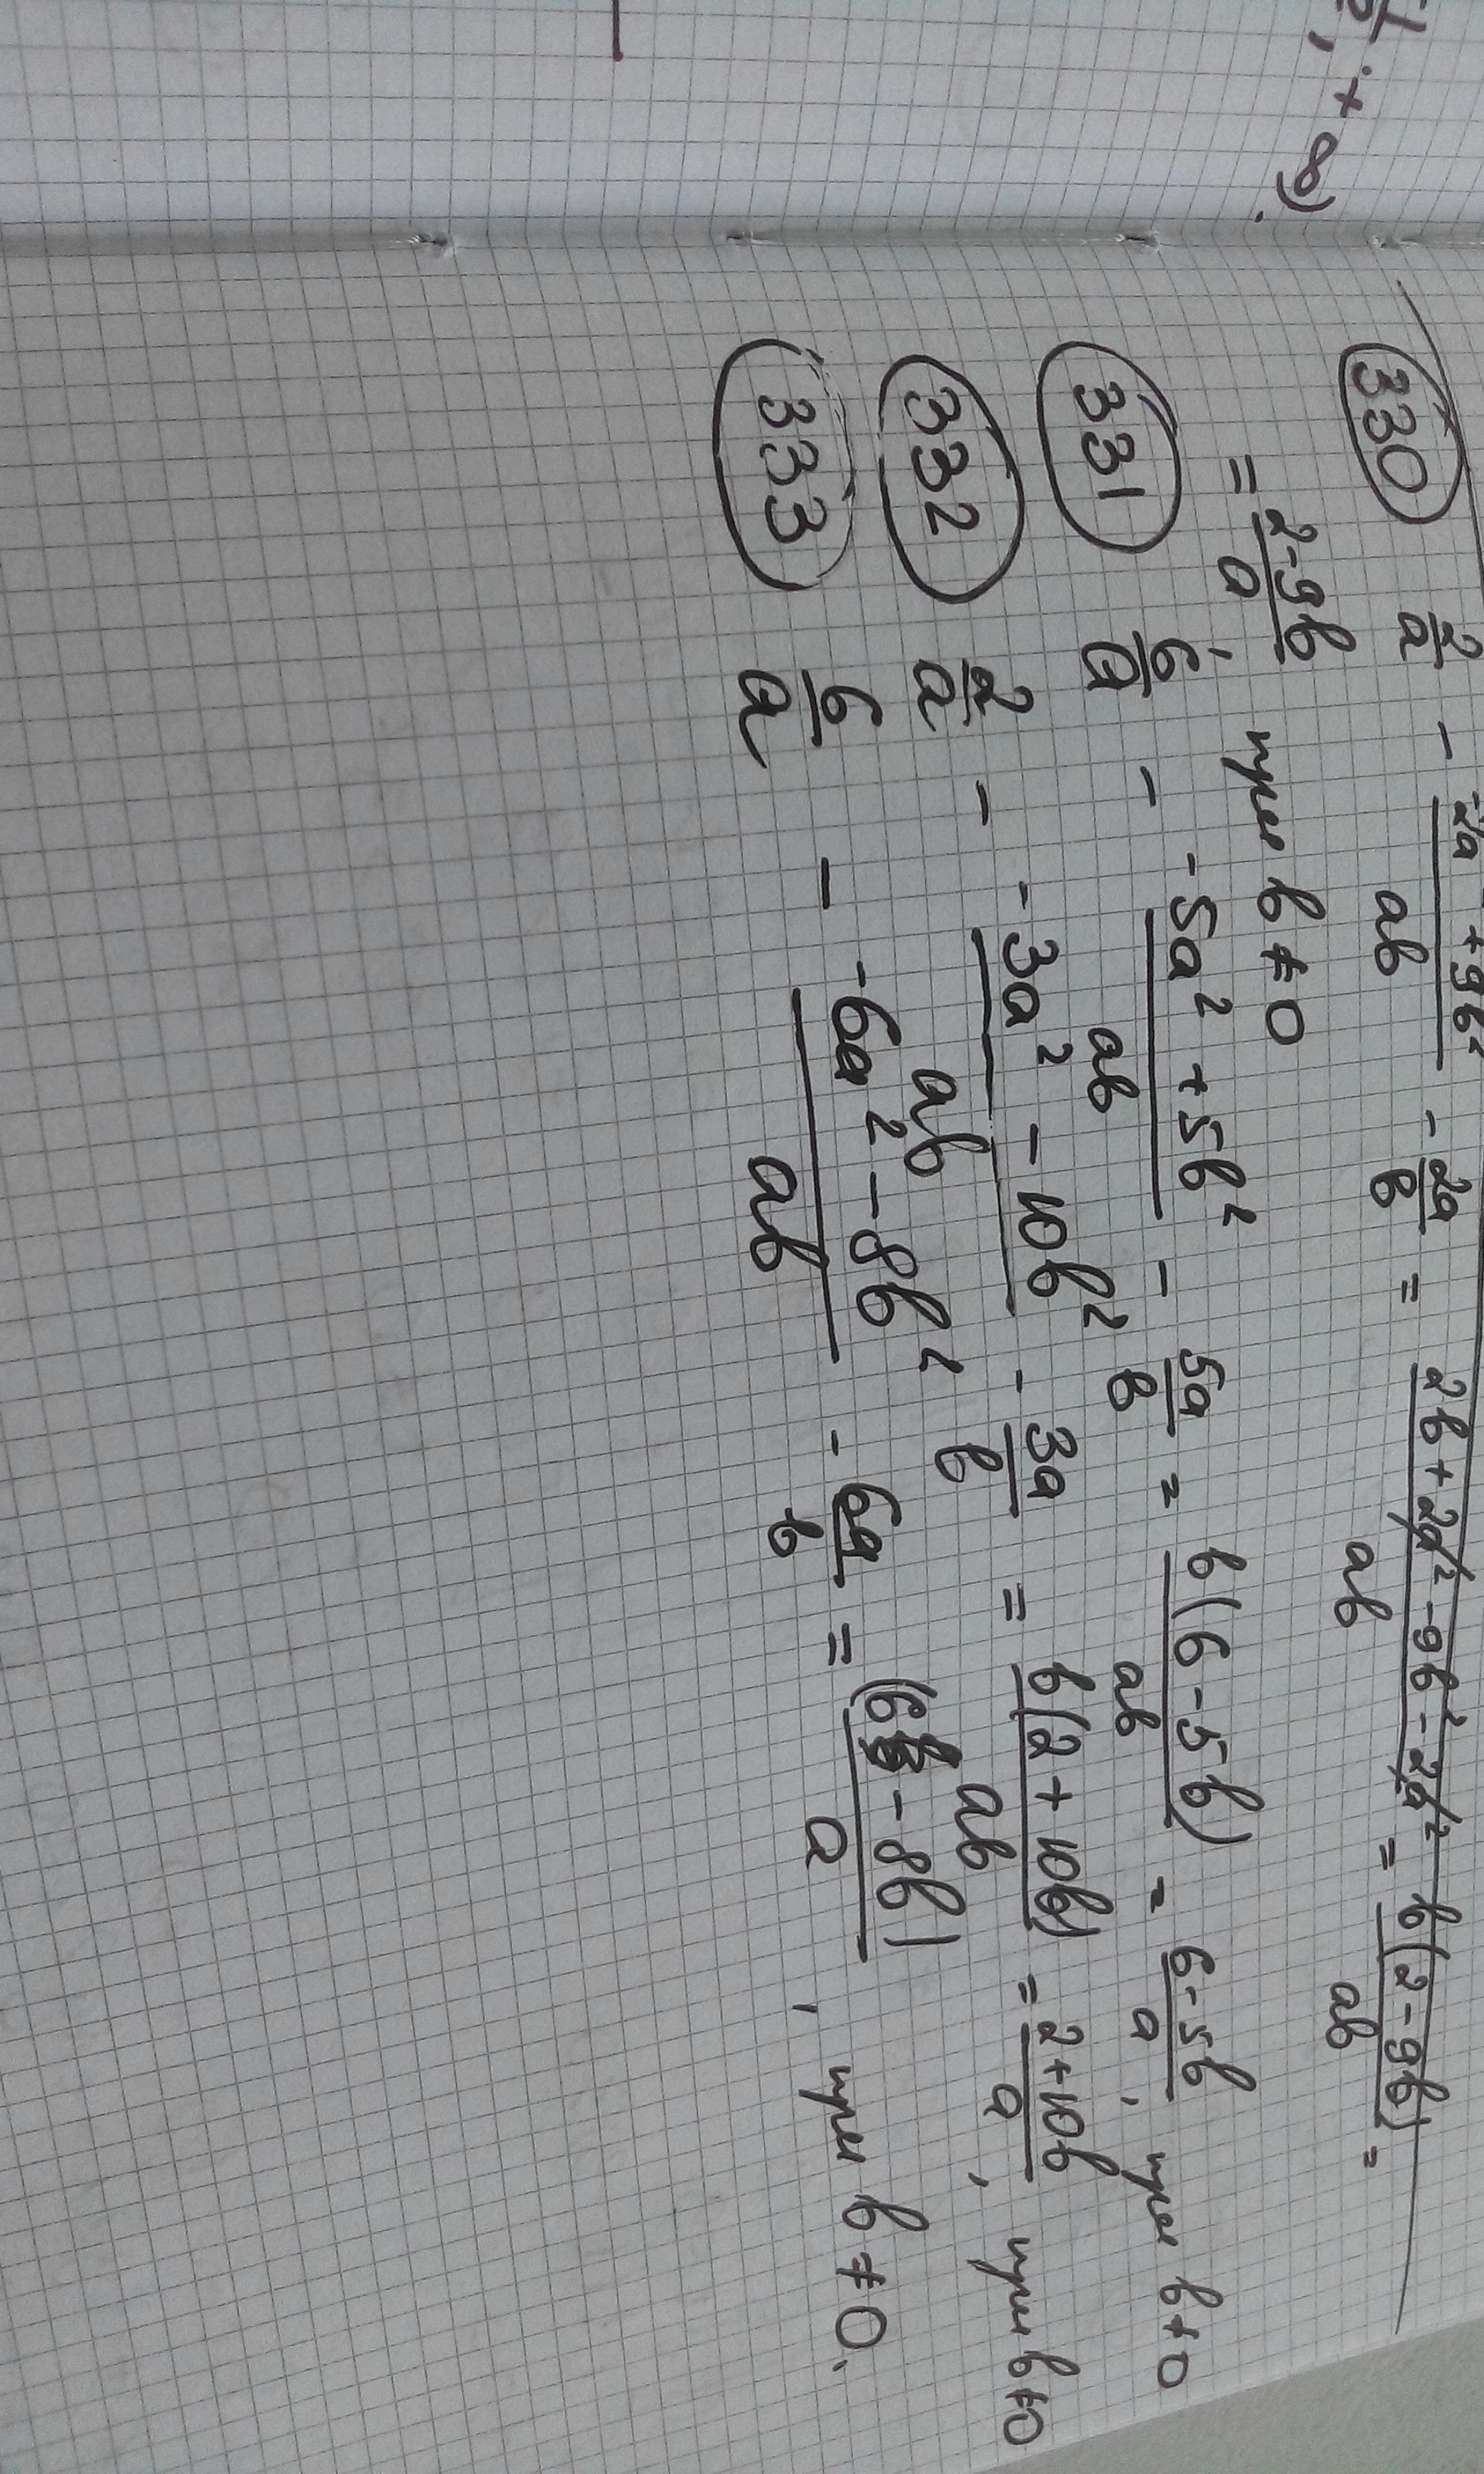 ; +∞).
330 2/a - (-2a + 9b²)/ab - 2a/b = (2b + 2a² - 9b² - 2a²)/ab = b(2 - 9b)/ab =
= (2 - 9b)/a, при b ≠ 0
331 6/a - (-5a² + 5b²)/ab - 5a/b = b(6 - 5b)/ab = (6 - 5b)/a, при b ≠ 0
332 2/a - (-3a² - 10b²)/ab - 3a/b = b(2 + 10b)/ab = (2 + 10b)/a, при b ≠ 0
333 6/a - (-6a² - 8b²)/ab - 6a/b = (6 - 8b)/a, при b ≠ 0.